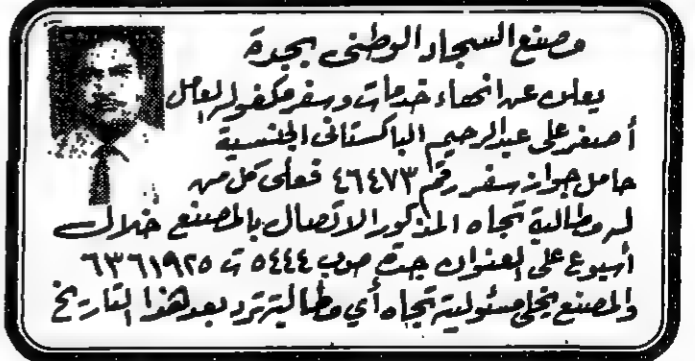 مصنع السجاد الوطنى بجدة
يعلن عن انهاء خدمات وسفر مكفوله العامل
أصغر على عبدالرحيم الباكستانى الجنسية
حامل جواز سفر رقم ٤٦٤٧٣ فعلى كل من
له مطالبة تجاه المذكور الاتصال بالمصنع خلال
أسبوع على العنوان جدة صوب ٥٤٤٤ ت ٦٣٦١٩٢٥
والمصنع يخلى مسئوليته تجاه أي مطالبة ترد بعد هذا التاريخ